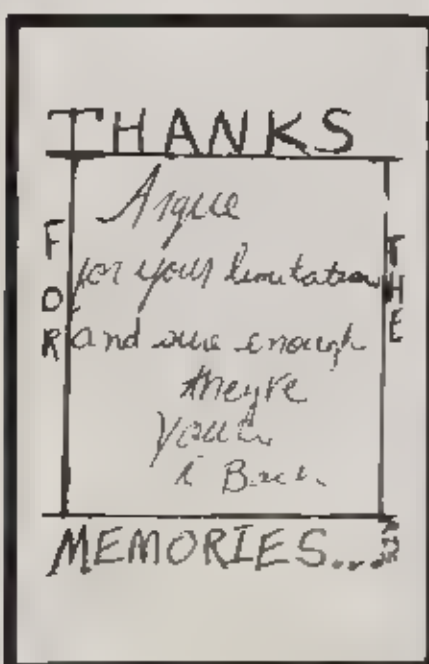 THANKS
FOR
THE
Argue
for your limitations
and sure enough
they're
yours
MEMORIES...